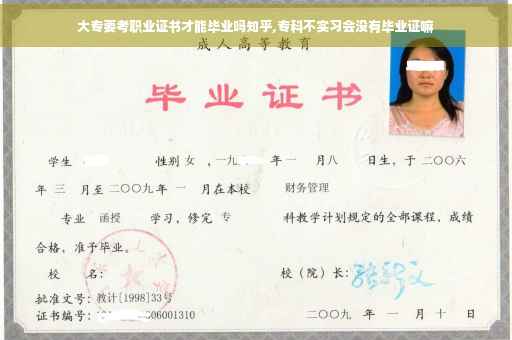 大专要考职业证书才能毕业吗知乎,专科不实习会没有毕业证嘛
成人高等教育
毕业证书
学生 性别 女 ,一九 年一 月八 日生,于二〇〇六
年 三 月至二〇〇九年 一 月在本校 财务管理
专业 函授 学习,修完 专 科教学计划规定的全部课程,成绩
合格,准予毕业。
校 名: 校(院)长:
批准文号:教计[1998]33号
证书编号: 06001310 二〇〇九 年 一 月 十 日